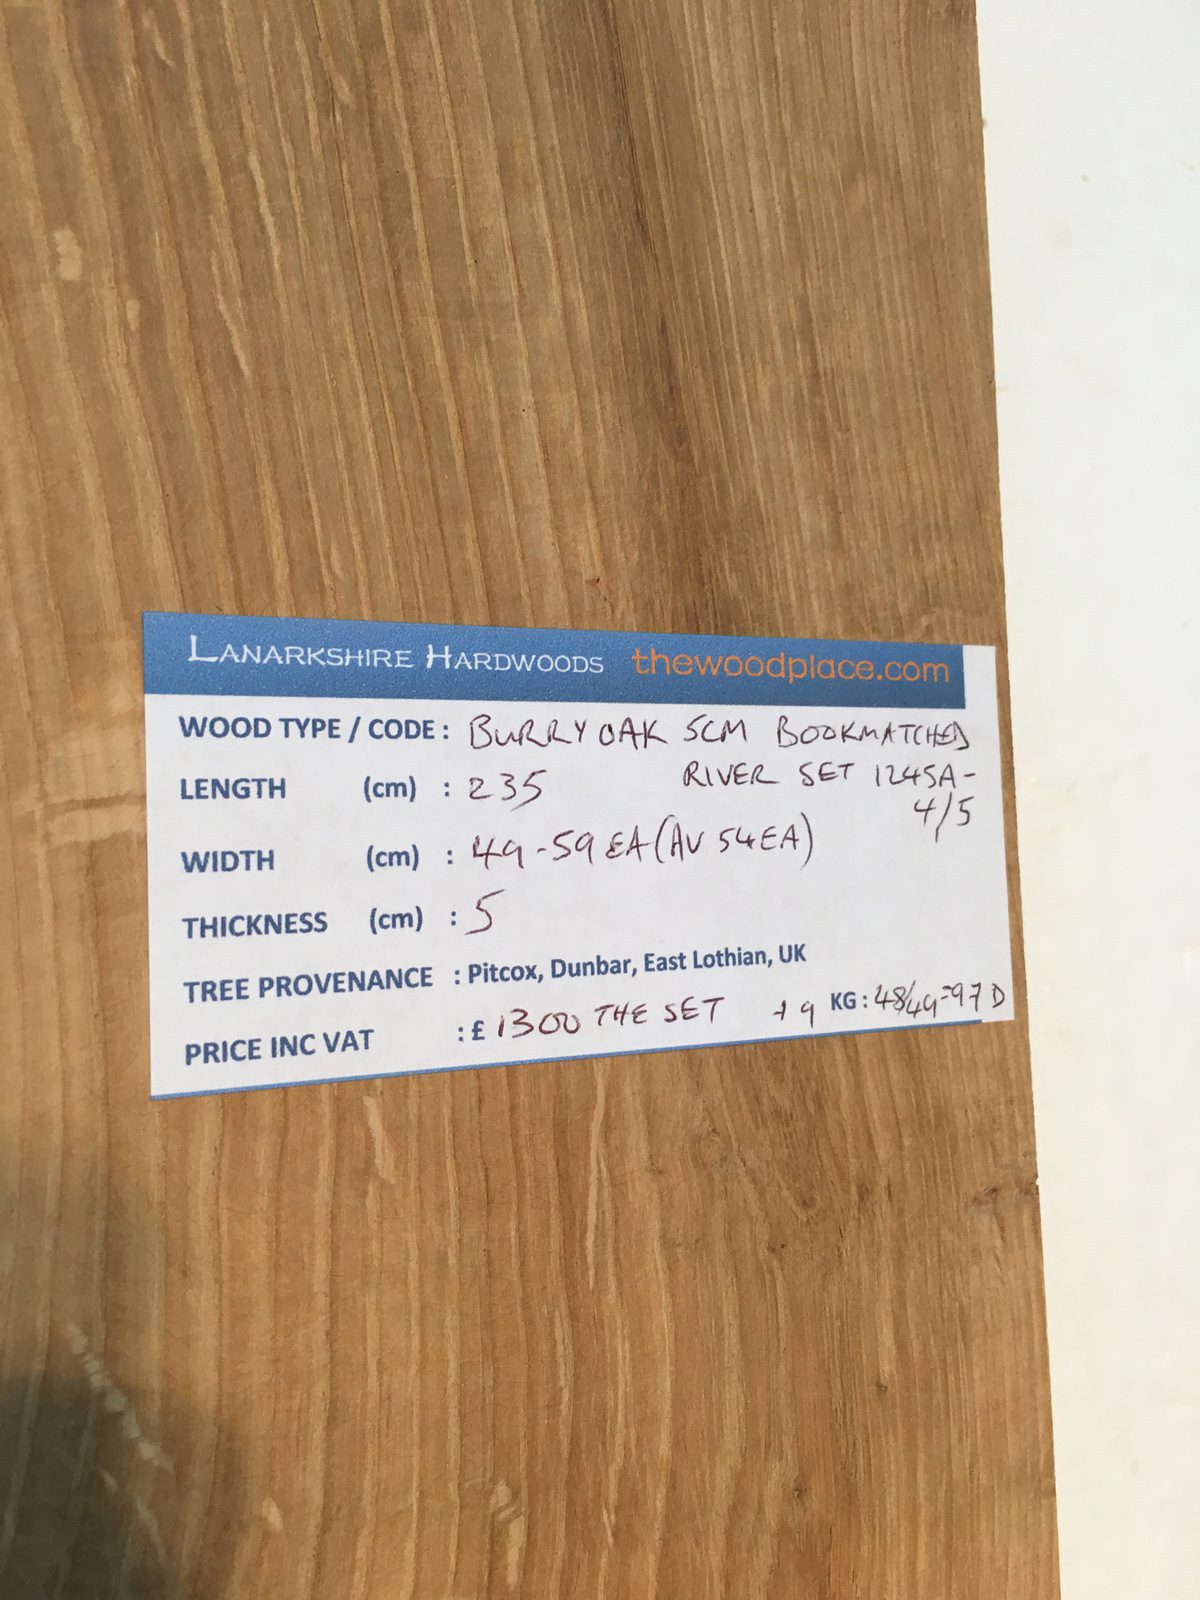 LANARKSHIRE HARDWOODS thewoodplace.com
WOOD TYPE / CODE : BURRY OAK 5CM BOOKMATCHED
RIVER SET 1245A-
4/5
LENGTH (cm) : 235
WIDTH (cm) : 49-59 EA (AV 54 EA)
THICKNESS (cm) : 5
TREE PROVENANCE : Pitcox, Dunbar, East Lothian, UK
PRICE INC VAT : £ 1300 THE SET KG : 48/49=97 D